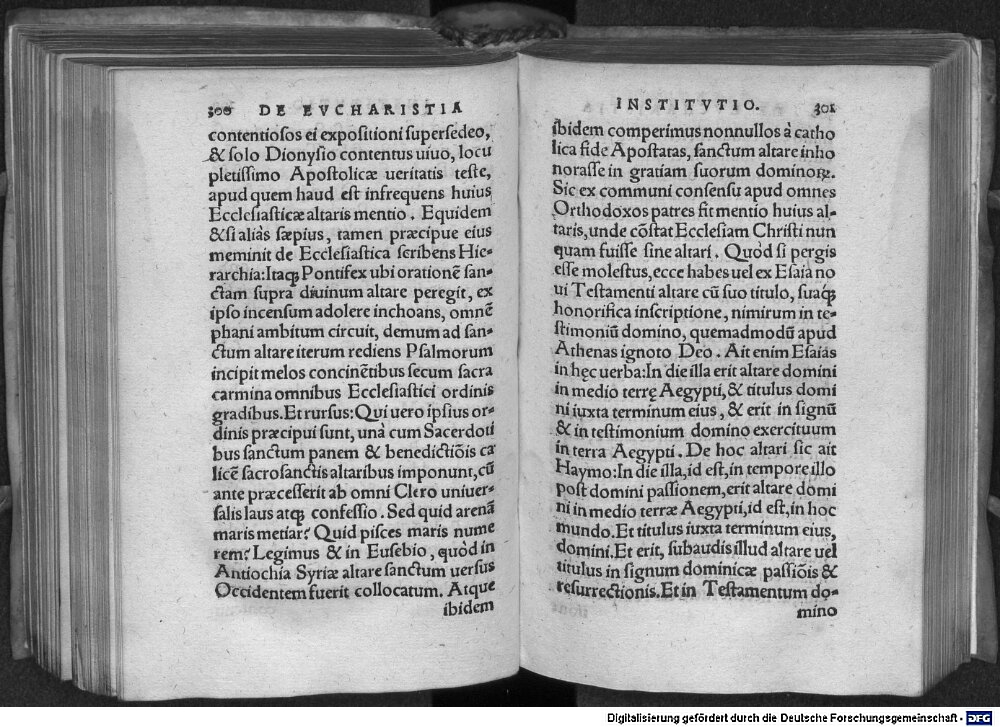 300 DE EVCHARISTIA
contentiosos ei expositioni supersedeo,
& solo Dionysio contentus uiuo, locu
pletissimo Apostolicæ ueritatis teste,
apud quem haud est infrequens huius
Ecclesiasticæ altaris mentio. Equidem
& si aliàs sæpius, tamen præcipue eius
meminit de Ecclesiastica scribens Hie-
rarchia: Itaqꝫ Pontifex ubi orationē san-
ctam supra diuinum altare peregit, ex
ipso incensum adolere inchoans, omnē
phani ambitum circuit, demum ad san-
ctum altare iterum rediens Psalmorum
incipit melos concinētibus secum sacra
carmina omnibus Ecclesiastici ordinis
gradibus. Et rursus: Qui uero ipsius or-
dinis præcipui sunt, unà cum Sacerdoti
bus sanctum panem & benedictiōis ca
licē sacrosanctis altaribus imponunt, cū
ante præcesserit ab omni Clero uniuer-
salis laus atqꝫ confessio. Sed quid arenā
maris metiar? Quid pisces maris nume
rem? Legimus & in Eusebio, quòd in
Antiochia Syriæ altare sanctum uersus
Occidentem fuerit collocatum. Atque
ibidem
INSTITVTIO. 301
ibidem comperimus nonnullos à catho
lica fide Apostatas, sanctum altare inho
norasse in gratiam suorum dominoꝝ.
Sic ex communi consensu apud omnes
Orthodoxos patres fit mentio huius al-
taris, unde cōstat Ecclesiam Christi nun
quam fuisse sine altari. Quòd si pergis
esse molestus, ecce habes uel ex Esaia no
ui Testamenti altare cū suo titulo, suaqꝫ
honorifica inscriptione, nimirum in te-
stimoniū domino, quemadmodū apud
Athenas ignoto Deo. Ait enim Esaias
in hęc uerba: In die illa erit altare domini
in medio terrę Aegypti, & titulus domi
ni iuxta terminum eius, & erit in signū
& in testimonium domino exercituum
in terra Aegypti. De hoc altari sic ait
Haymo: In die illa, id est, in tempore illo
post domini passionem, erit altare domi
ni in medio terræ Aegypti, id est, in hoc
mundo. Et titulus iuxta terminum eius,
domini. Et erit, subaudis illud altare uel
titulus in signum dominicæ passiōis &
resurrectionis. Et in Testamentum do-
mino
Digitalisierung gefördert durch die Deutsche Forschungsgemeinschaft - DFG